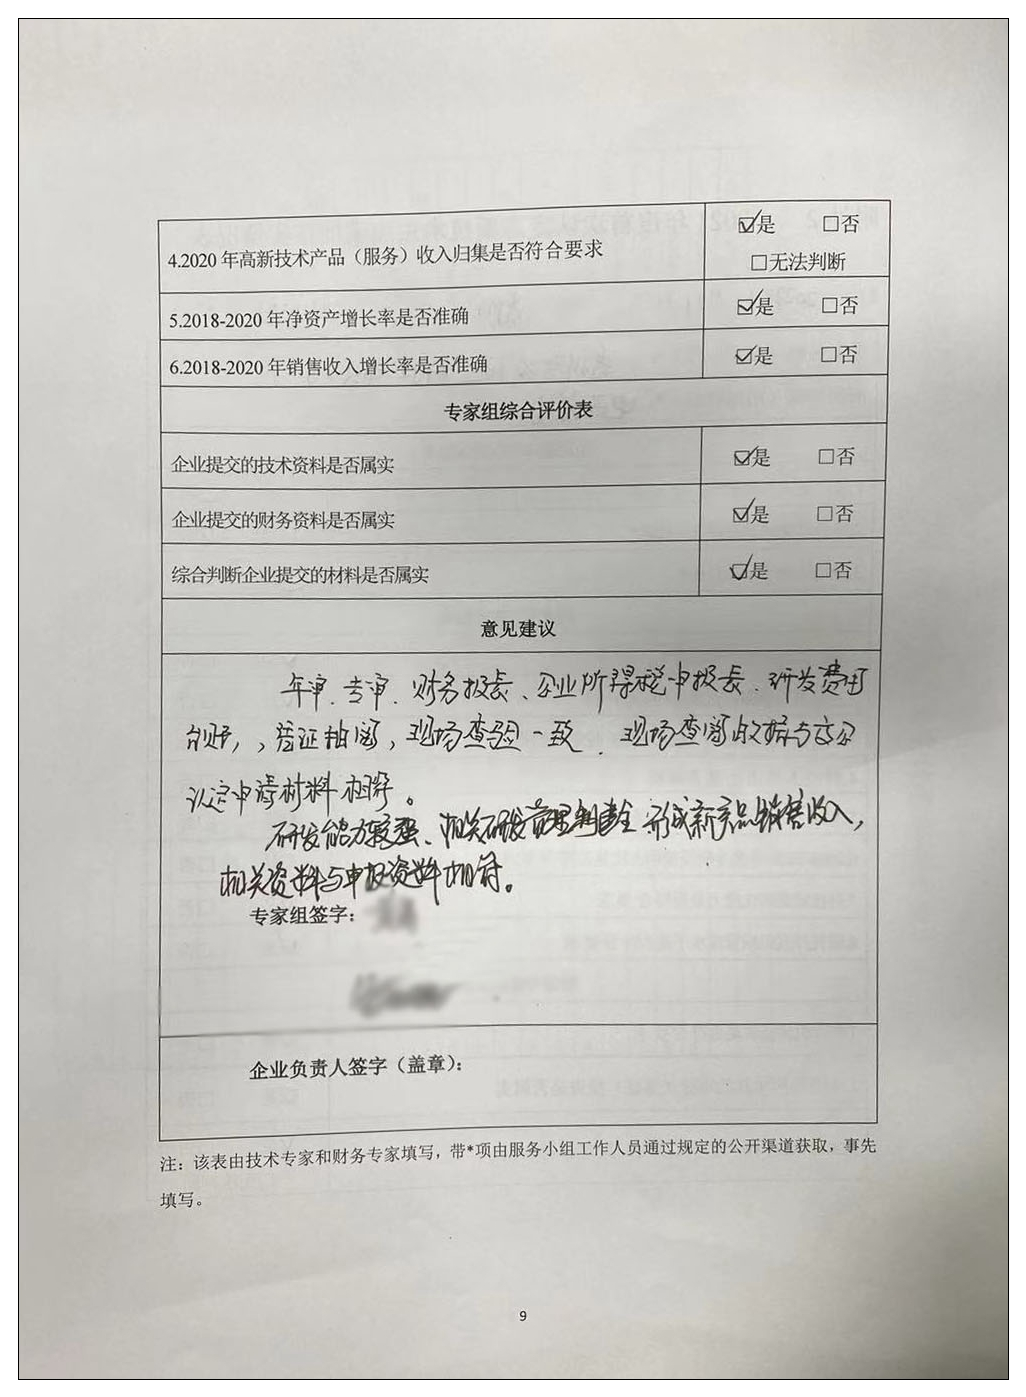 4.2020 年高新技术产品（服务）收入归集是否符合要求
☑是 □否
□无法判断
5.2018-2020 年净资产增长率是否准确 ☑是 □否
6.2018-2020 年销售收入增长率是否准确 ☑是 □否
专家组综合评价表
企业提交的技术资料是否属实 ☑是 □否
企业提交的财务资料是否属实 ☑是 □否
综合判断企业提交的材料是否属实 ☑是 □否
意见建议
年审、专审、财务报表、企业所得税申报表、研发费用
凭证抽阅，现场查验一致、现场查阅
认定申请材料相符。
研发能力较强、相关研发管理制健全 形成新产品销售收入，
相关资料与申报资料相符。
专家组签字：
企业负责人签字（盖章）：
注：该表由技术专家和财务专家填写，带*项由服务小组工作人员通过规定的公开渠道获取，事先
填写。
9